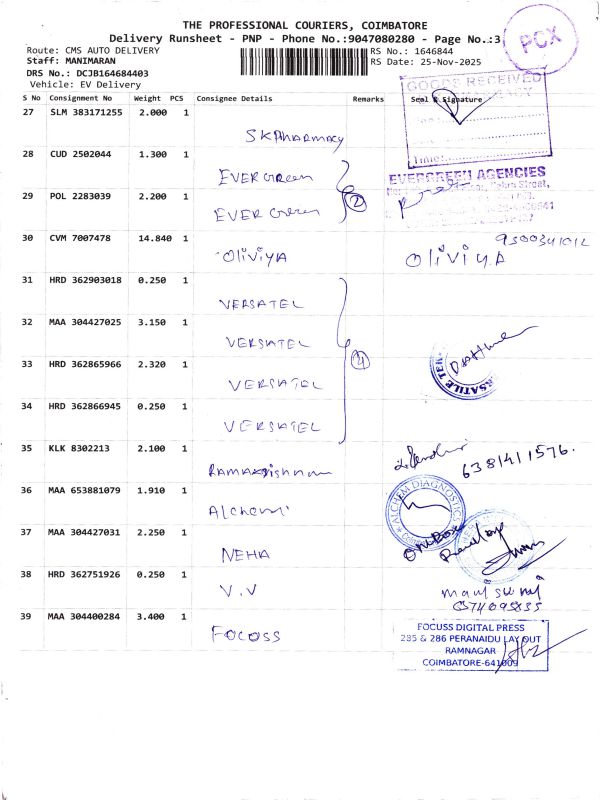 THE PROFESSIONAL COURIERS, COIMBATORE
Delivery Runsheet - PNP - Phone No.:9047080280 - Page No.:3
PCX
Route: CMS AUTO DELIVERY
RS No.: 1646844
Staff: MANIMARAN
RS Date: 25-Nov-2025
DRS No.: DCJB164684403
Vehicle: EV Delivery
GOODS RECEIVED
S No Consignment No Weight PCS Consignee Details Remarks Seal & Signature
27 SLM 383171255 2.000 1
SK PHARMACY
Time:
28 CUD 2502044 1.300 1
EVER Green
EVERGREEN AGENCIES
29 POL 2283039 2.200 1
EVER Green
2
30 CVM 7007478 14.840 1
OLIVIYA
OLIVIYA
31 HRD 362903018 0.250 1
VERSATEL
32 MAA 304427025 3.150 1
VERSATEL
4
33 HRD 362865966 2.320 1
VERSATEL
34 HRD 362866945 0.250 1
VERSATEL
35 KLK 8302213 2.100 1
6381411576.
Ramakrishnan
36 MAA 653881079 1.910 1
Alchemi
ALCHEM DIAGNOSTICS
37 MAA 304427031 2.250 1
NEHA
38 HRD 362751926 0.250 1
V.V
39 MAA 304400284 3.400 1
FOCOSS
FOCUSS DIGITAL PRESS
285 & 286 PERANAIDU LAYOUT
RAMNAGAR
COIMBATORE-641009